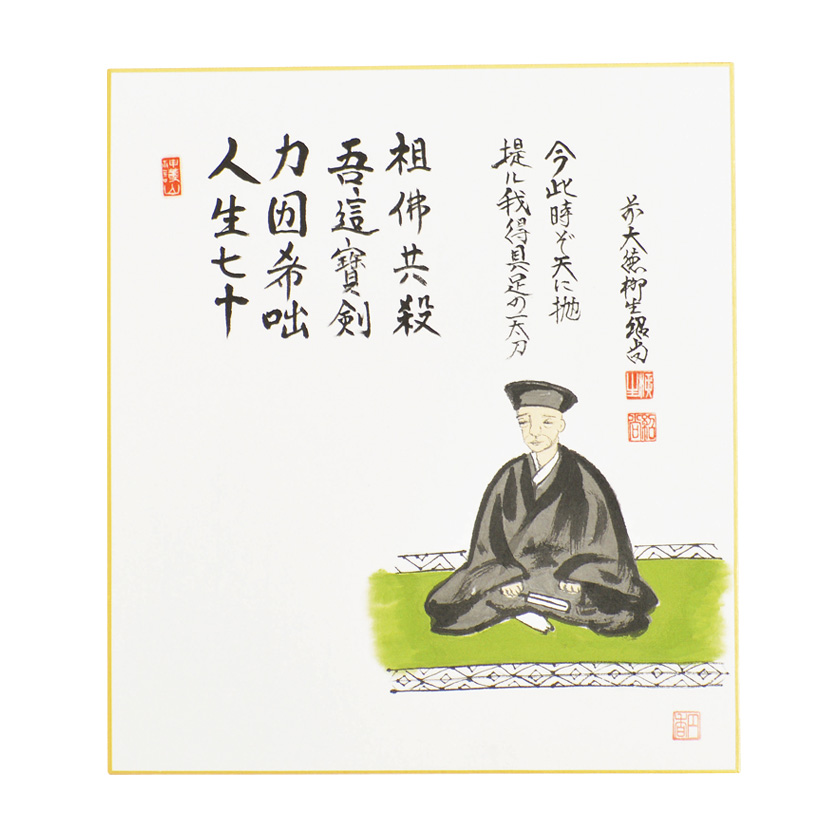 人生七十
力因希咄
吾這寶剣
祖佛共殺
提ル我得具足の一太刀
今此時ぞ天に抛
前大徳柳生紹尚